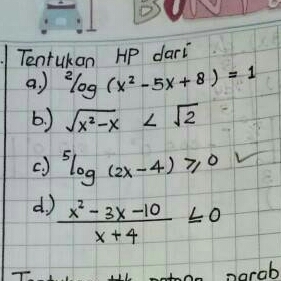 Tentukan HP dari
a.) ²log (x² - 5x + 8) = 1
b.) √x²-x < √2
c.) ⁵log (2x - 4) ≥ 0 ✓
d.) x² - 3x - 10 / x + 4 ≤ 0